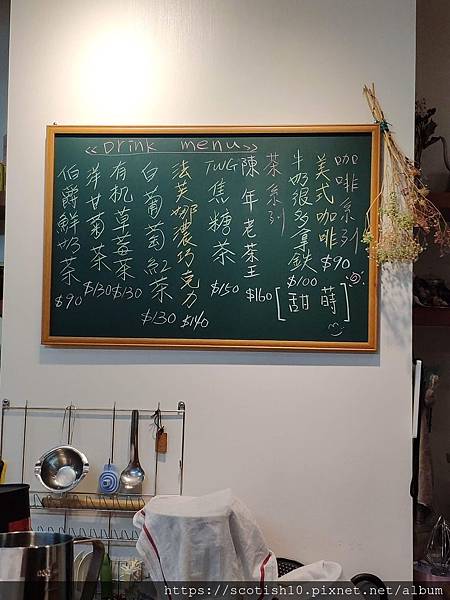 <<Drink menu>>
咖啡系列
美式咖啡 $90
牛奶很多拿鐵 $100
[甜蒔]
茶系列
陳年老茶王 $160
TWG焦糖茶 $150
法芙娜濃巧克力 $140
白葡萄紅茶 $130
有机草莓茶 $130
洋甘菊茶 $130
伯爵鮮奶茶 $90
https://scotish10.pixnet.net/album